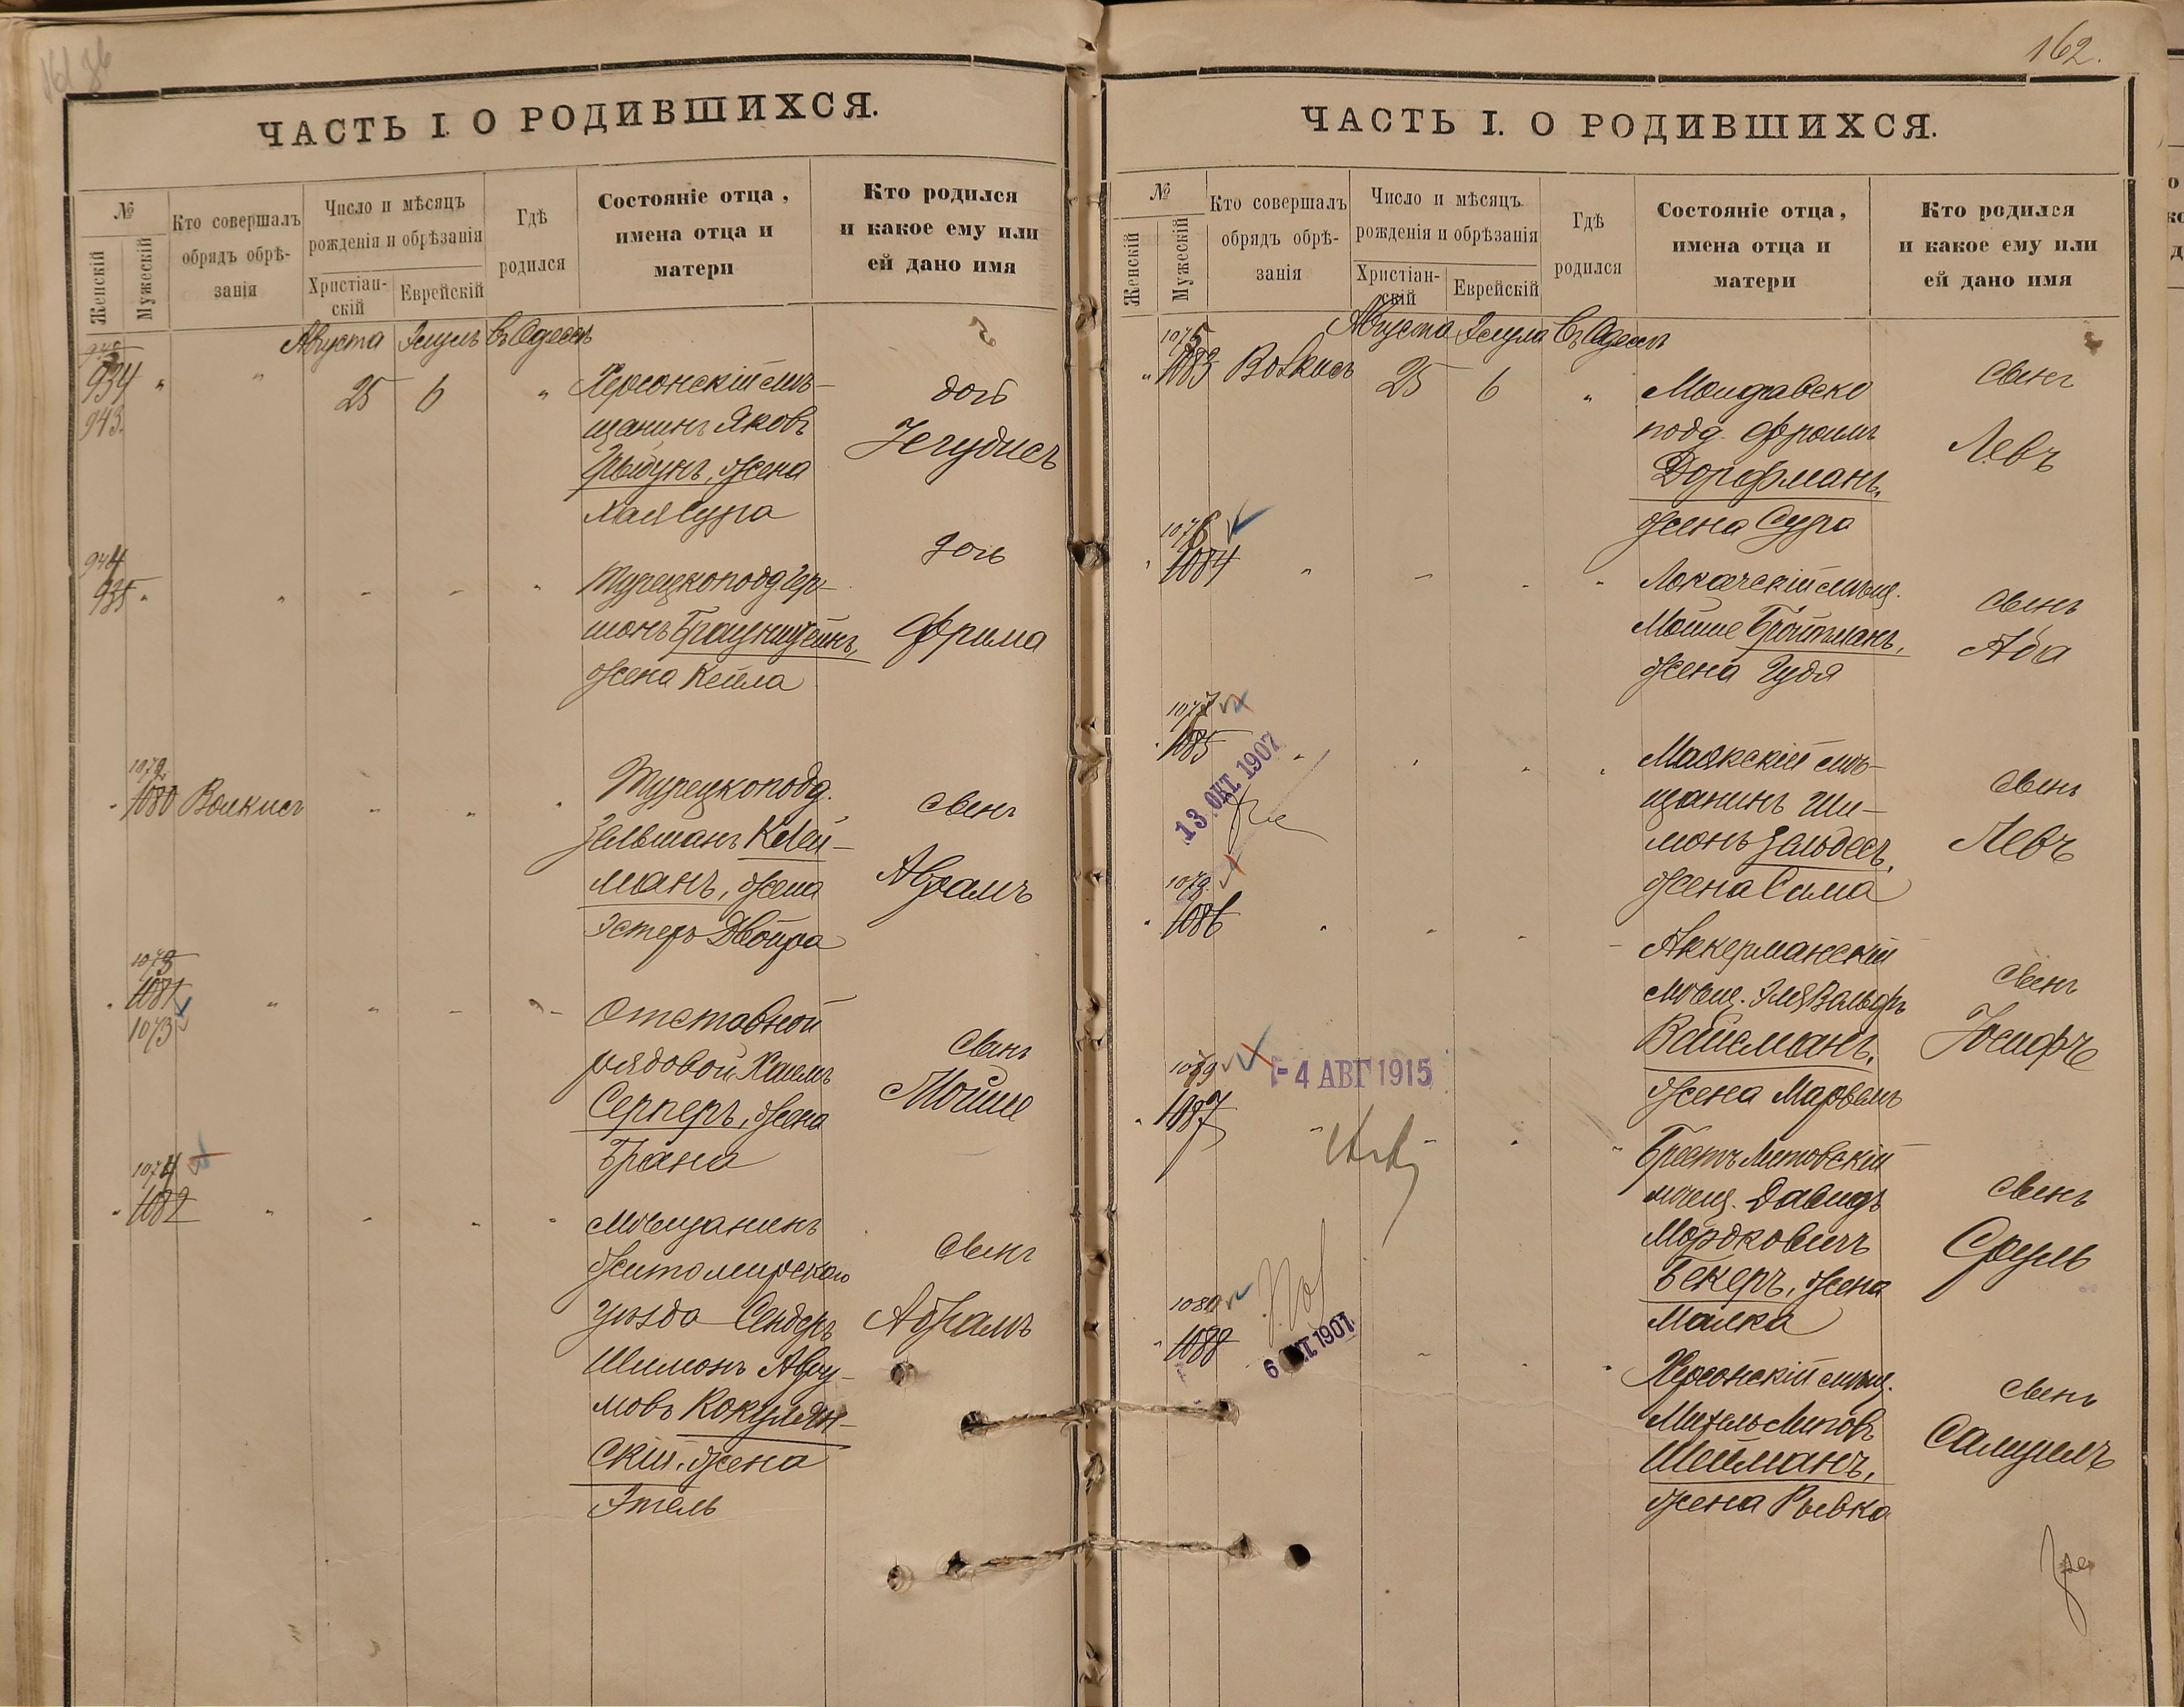 ЧАСТЬ I. О РОДИВШИХСЯ.
№
Женскій
Мужескій
Кто совершалъ
обрядъ обрѣ-
занія
Число и мѣсяцъ
рожденія и обрѣзанія
Христіан-
скій
Еврейскій
Гдѣ
родился
Состояніе отца,
имена отца и
матери
Кто родился
и какое ему или
ей дано имя
Августа Элулъ Въ Одессѣ
934 " " 25 6 "
943.
Херсонскій мѣ-
щанинъ Яковъ
жена
Хая Сура
дочь
944
935
Турецкоподд. Гер-
шонъ Браунштейнъ,
жена Кейла
дочь
Фрима
1072
1080 Волкисъ
Турецкоподд.
Зельманъ Клей-
манъ, жена
Эстеръ Двойра
сынъ
Абрамъ
1073
1081
1073
Отставной
рядовой Хаимъ
Серперъ, жена
Брана
сынъ
Мойше
1074
1082
Мѣщанинъ
Житомирскаго
уѣзда Сендеръ
Шимонъ Абру-
мовъ Кокулян-
скій, жена
Этель
сынъ
Абрамъ
162.
ЧАСТЬ I. О РОДИВШИХСЯ.
№
Женскій
Мужескій
Кто совершалъ
обрядъ обрѣ-
занія
Число и мѣсяцъ
рожденія и обрѣзанія
Христіан-
скій
Еврейскій
Гдѣ
родился
Состояніе отца,
имена отца и
матери
Кто родился
и какое ему или
ей дано имя
1075 Августа Элула Въ Одессѣ
1083 Волкисъ 25 6 "
Молдавско
подд. Фроимъ
Дорфманъ,
жена Сура
сынъ
Левъ
1076
1084
Локачскій мѣщ.
Мойше Бройтманъ,
жена Гудя
сынъ
Аба
1077
1085
13 ОКТ. 1907
Маякскій мѣ-
щанинъ Ши-
монъ
жена Сима
сынъ
Левъ
1086
Аккерманскій
мѣщ. Эля Вольфъ
Вайсманъ,
жена
сынъ
Іосифъ
1087
4 АВГ 1915
Брестъ Литовскій
мѣщ. Давидъ
Мордковичъ
Бекеръ, жена
Малка
сынъ
Сруль
1088
1907
Херсонскій мѣщ.
Липовъ
Шейманъ,
жена Рывка
сынъ
Самуилъ